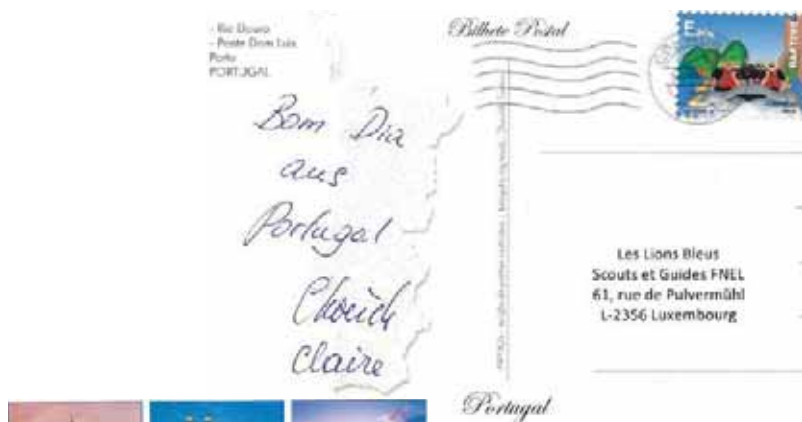 - Rio Douro
- Ponte Dom Luis
Porto
PORTUGAL
Bilhete Postal
Bom Dia
aus
Portugal
Claire
Les Lions Bleus
Scouts et Guides FNEL
61, rue de Pulvermühl
L-2356 Luxembourg
Portugal